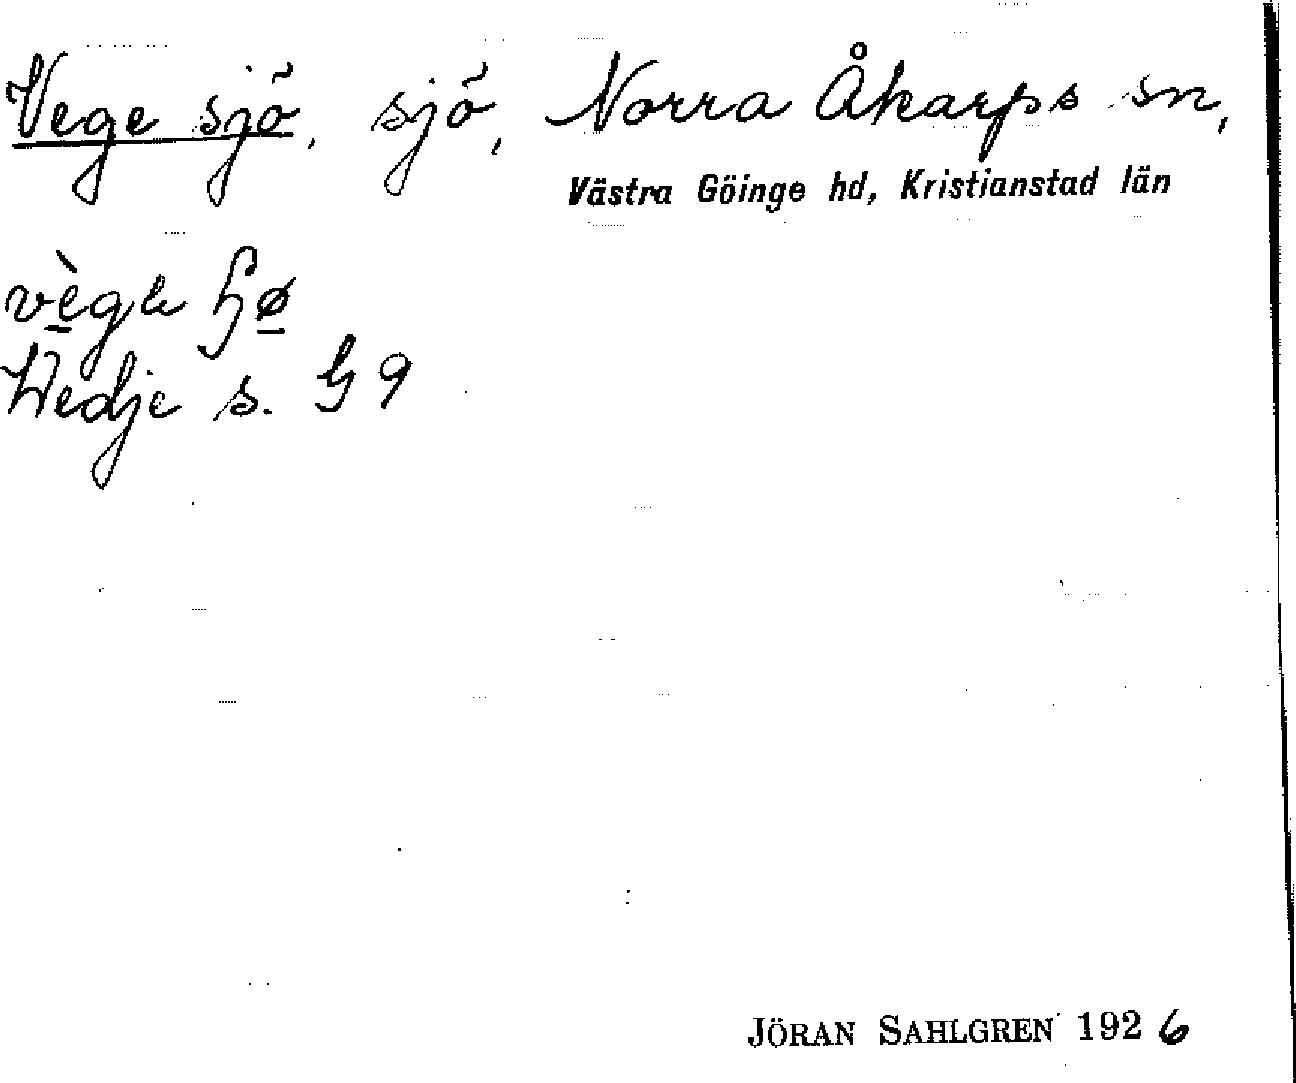 Vege sjö, sjö, Norra Åkarps sn,
Västra Göinge hd, Kristianstad län
Wedje s. G 9
JÖRAN SAHLGREN 1926